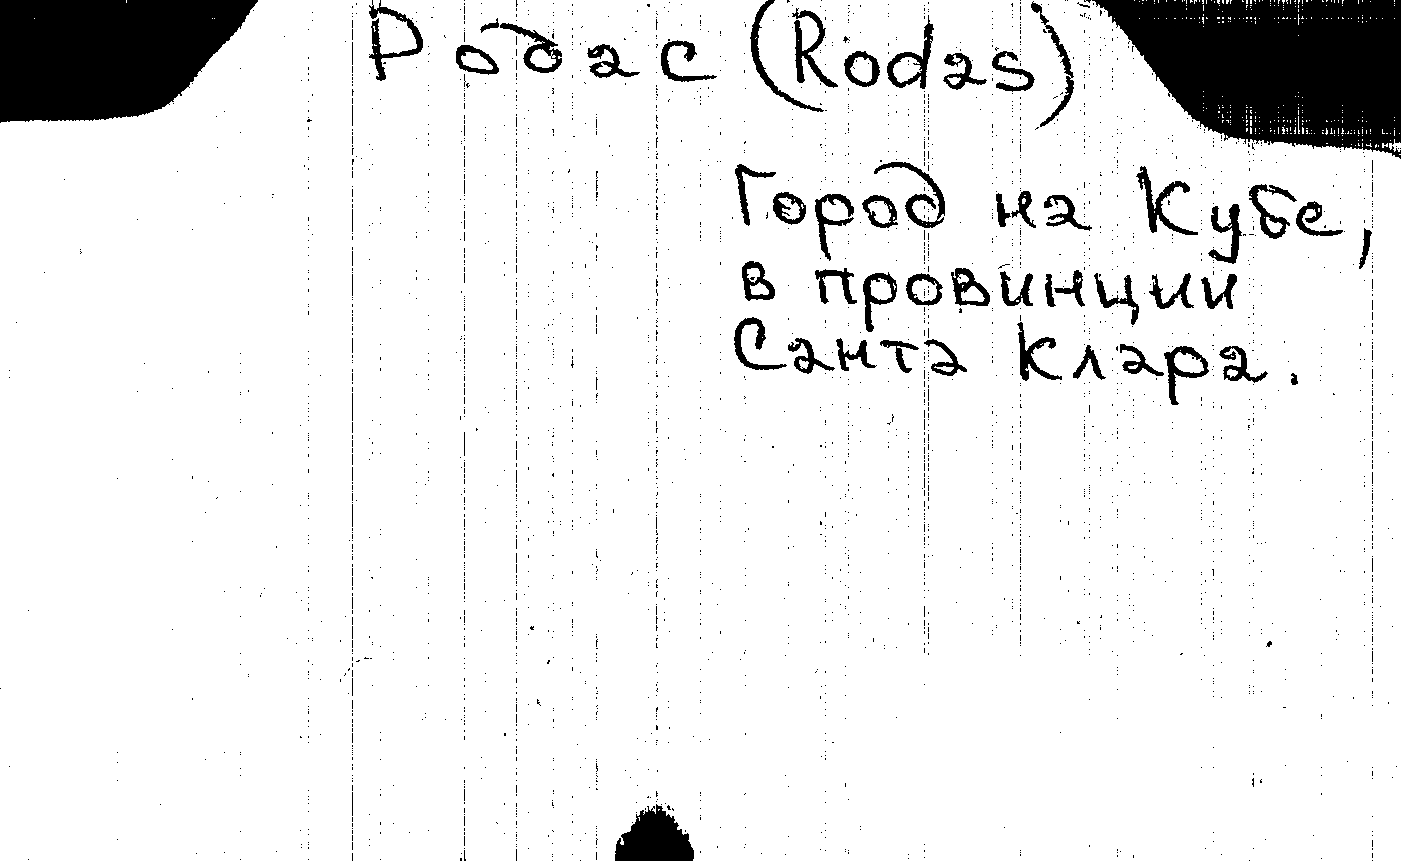 Родас (Rodas)
Город на Кубе,
в провинции
Санта Клара.